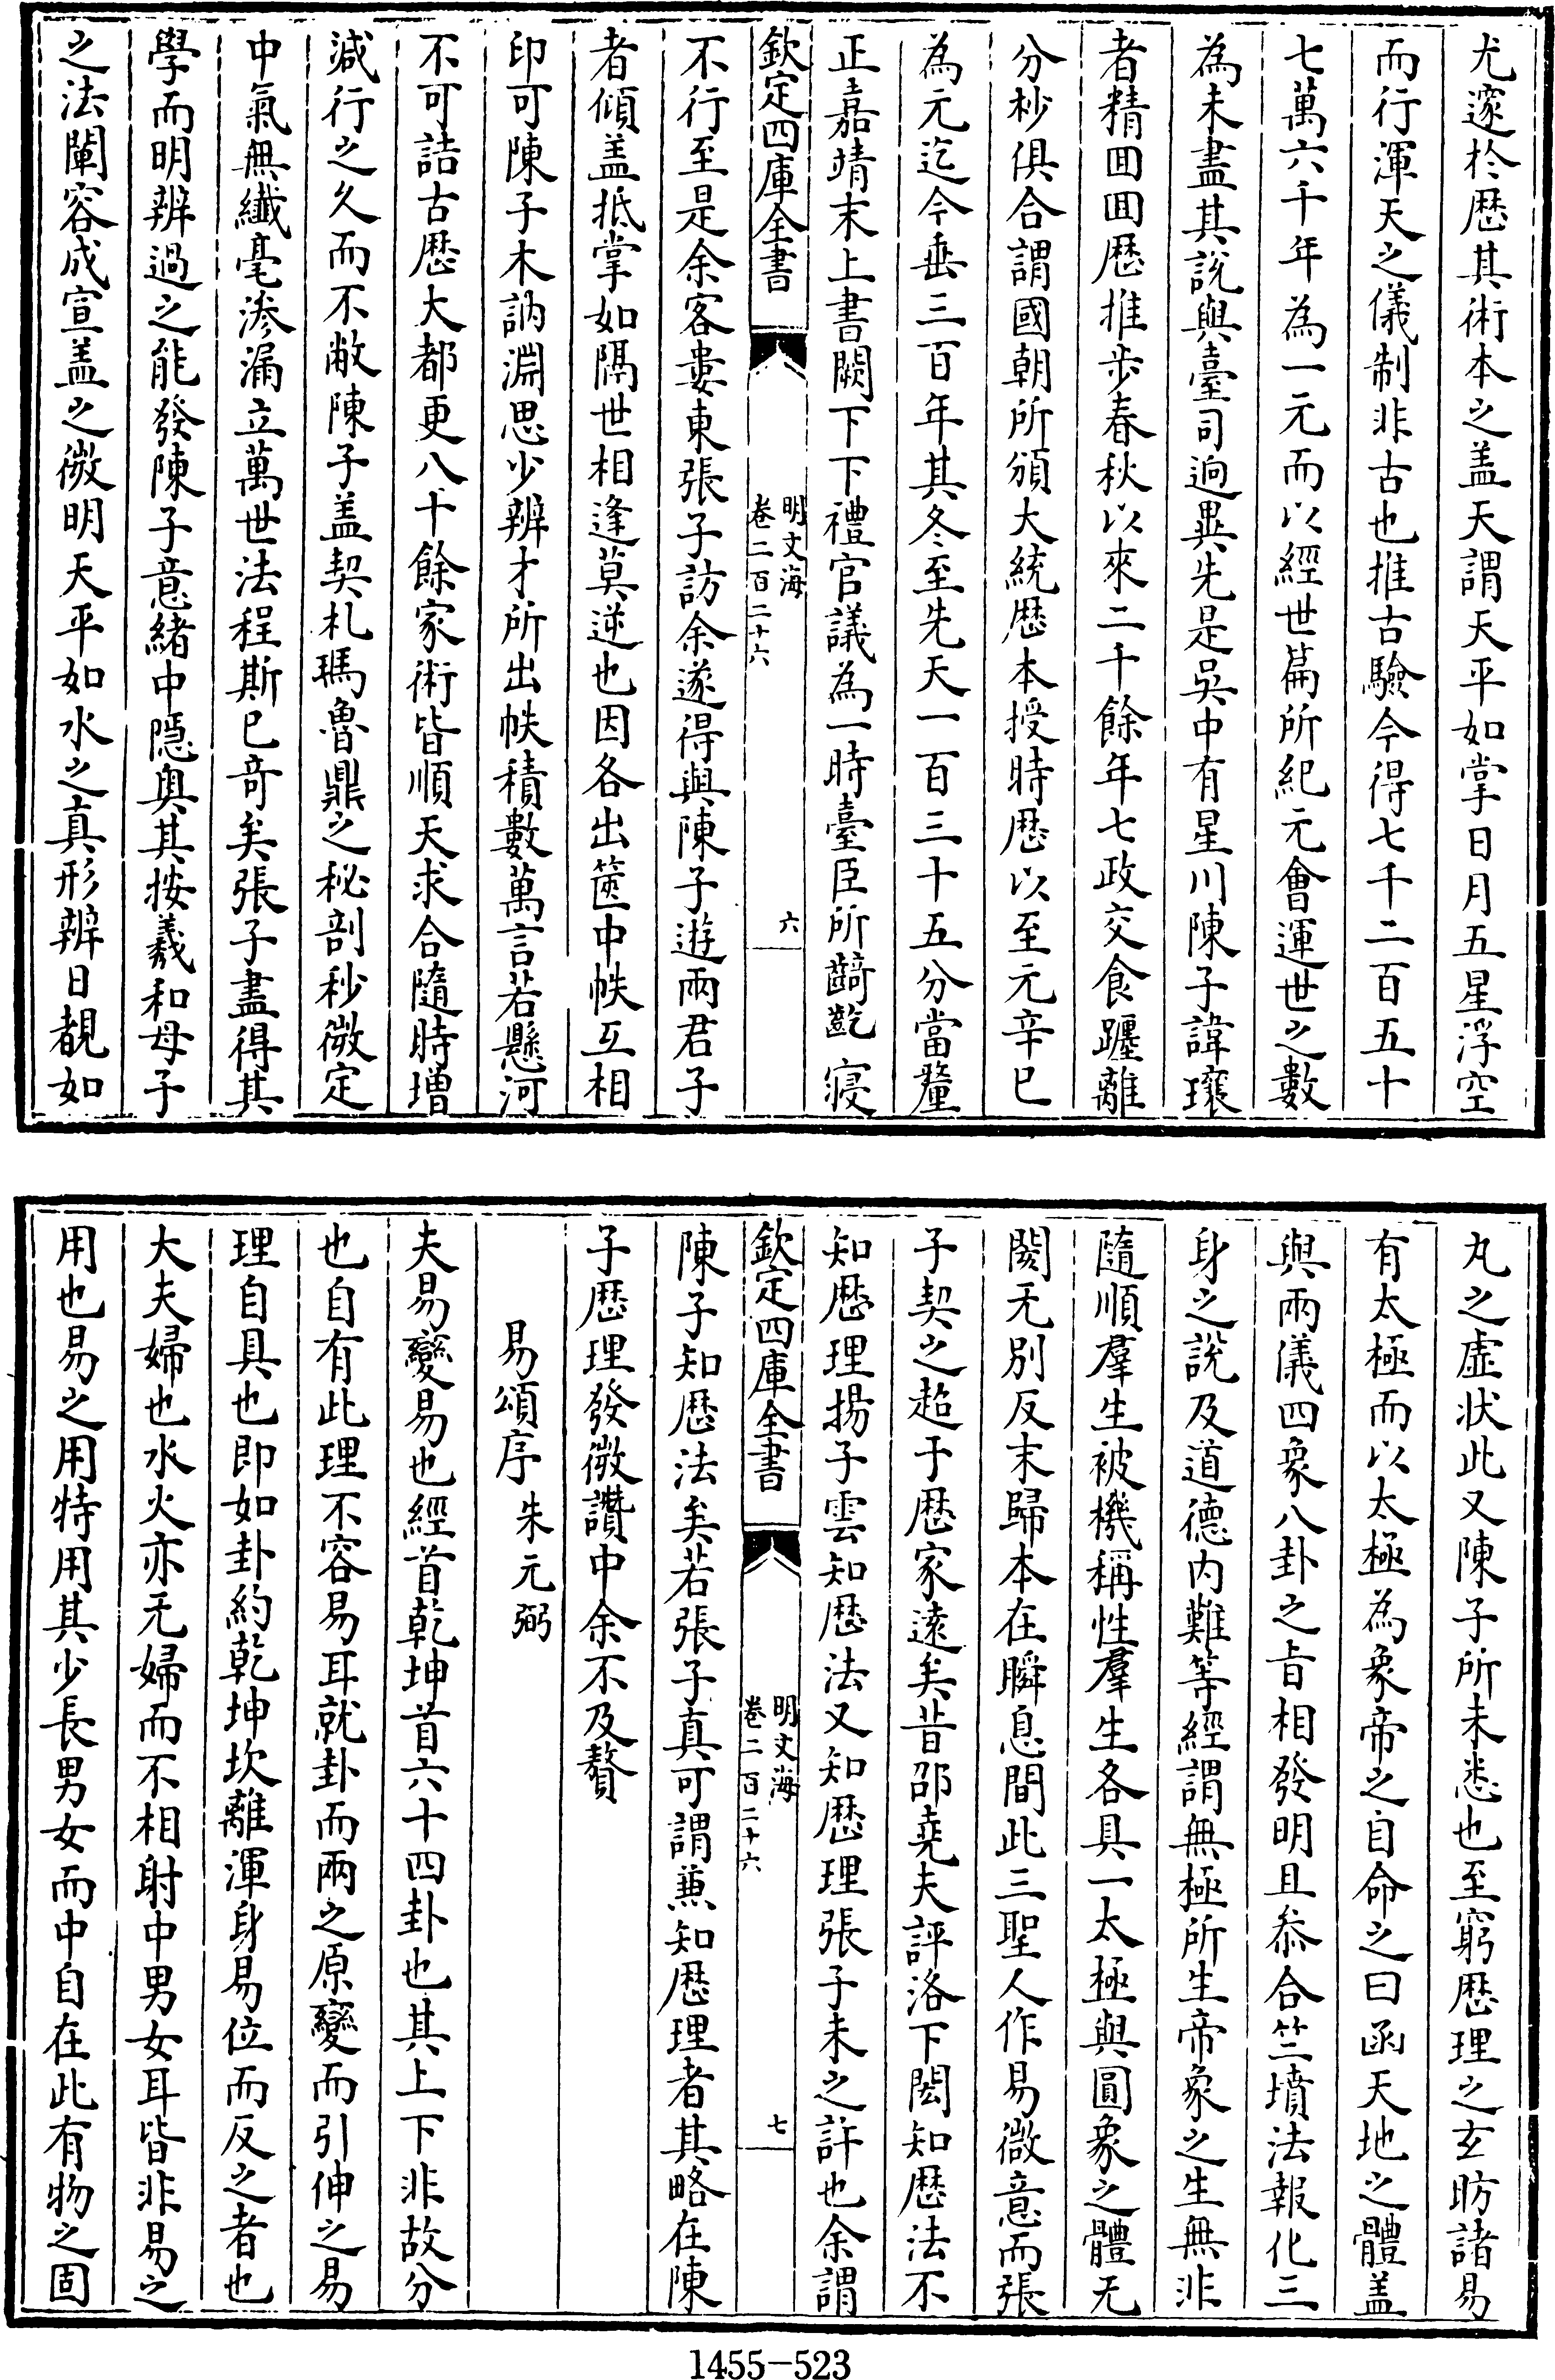 尤邃於歴其術本之盖天謂天平如掌日月五星浮空
而行渾天之儀制非古也推古驗今得七千二百五十
七萬六千年為一元而以經世篇所紀元會運世之數
為未盡其說與臺司逈異先是吳中有星川陳子諱瓌
者精囬囬歴推步春秋以來二千餘年七政交食躔離
分杪俱合謂國朝所頒大統歴本授時歴以至元辛巳
為元迄今垂三百年其冬至先天一百三十五分當釐
正嘉靖末上書闕下下禮官議為一時臺臣所齮齕寢
欽定四庫全書
明文海
卷二百二十六
六
不行至是余客婁東張子訪余遂得與陳子遊兩君子
者傾盖抵掌如隔世相逢莫逆也因各出篋中帙互相
印可陳子木訥淵思少辨才所出帙積數萬言若懸河
不可詰古歴大都更八十餘家術皆順天求合隨時增
減行之久而不敝陳子盖契札瑪魯鼎之秘剖秒微定
中氣無纖毫滲漏立萬世法程斯已奇矣張子盡得其
學而明辨過之能發陳子意緒中隱奥其按羲和母子
之法闡容成宣盖之微明天平如水之真形辨日覩如
丸之虛狀此又陳子所未悉也至窮歴理之玄昉諸易
有太極而以太極為象帝之自命之曰函天地之體盖
與兩儀四象八卦之旨相發明且叅合竺墳法報化三
身之說及道德内難等經謂無極所生帝象之生無非
隨順羣生被機稱性羣生各具一太極與圓象之體无
閡无别反末歸本在瞬息間此三聖人作易微意而張
子契之超于歴家遠矣昔邵堯夫評洛下閎知歴法不
知歴理揚子雲知歴法又知歴理張子未之許也余謂
欽定四庫全書
明文海
卷二百二十六
七
陳子知歴法矣若張子真可謂兼知歴理者其略在陳
子歴理發微讚中余不及贅
易頌序 朱元弼
夫易變易也經首乾坤首六十四卦也其上下非故分
也自有此理不容易耳就卦而兩之原變而引伸之易
理自具也即如卦約乾坤坎離渾身易位而反之者也
大夫婦也水火亦无婦而不相射中男女耳皆非易之
用也易之用特用其少長男女而中自在此有物之固
1455-523